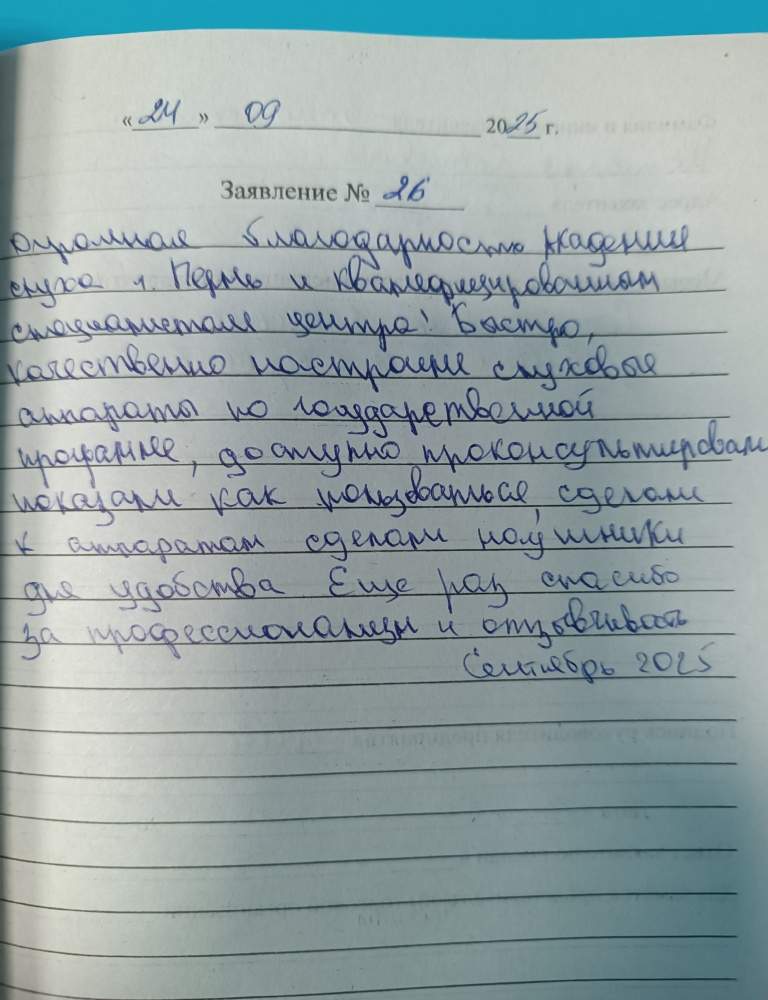 «24» 09 2025 г.
Заявление № 26
Огромная благодарность Академии
слуха г. Пермь и квалифицированным
специалистам центра! Быстро,
качественно настроили слуховые
аппараты по государственной
программе, доступно проконсультировали
показали как пользоваться, сделали
к аппаратам сделали наушники
для удобства Еще раз спасибо
за профессионализм и отзывчивость
Сентябрь 2025